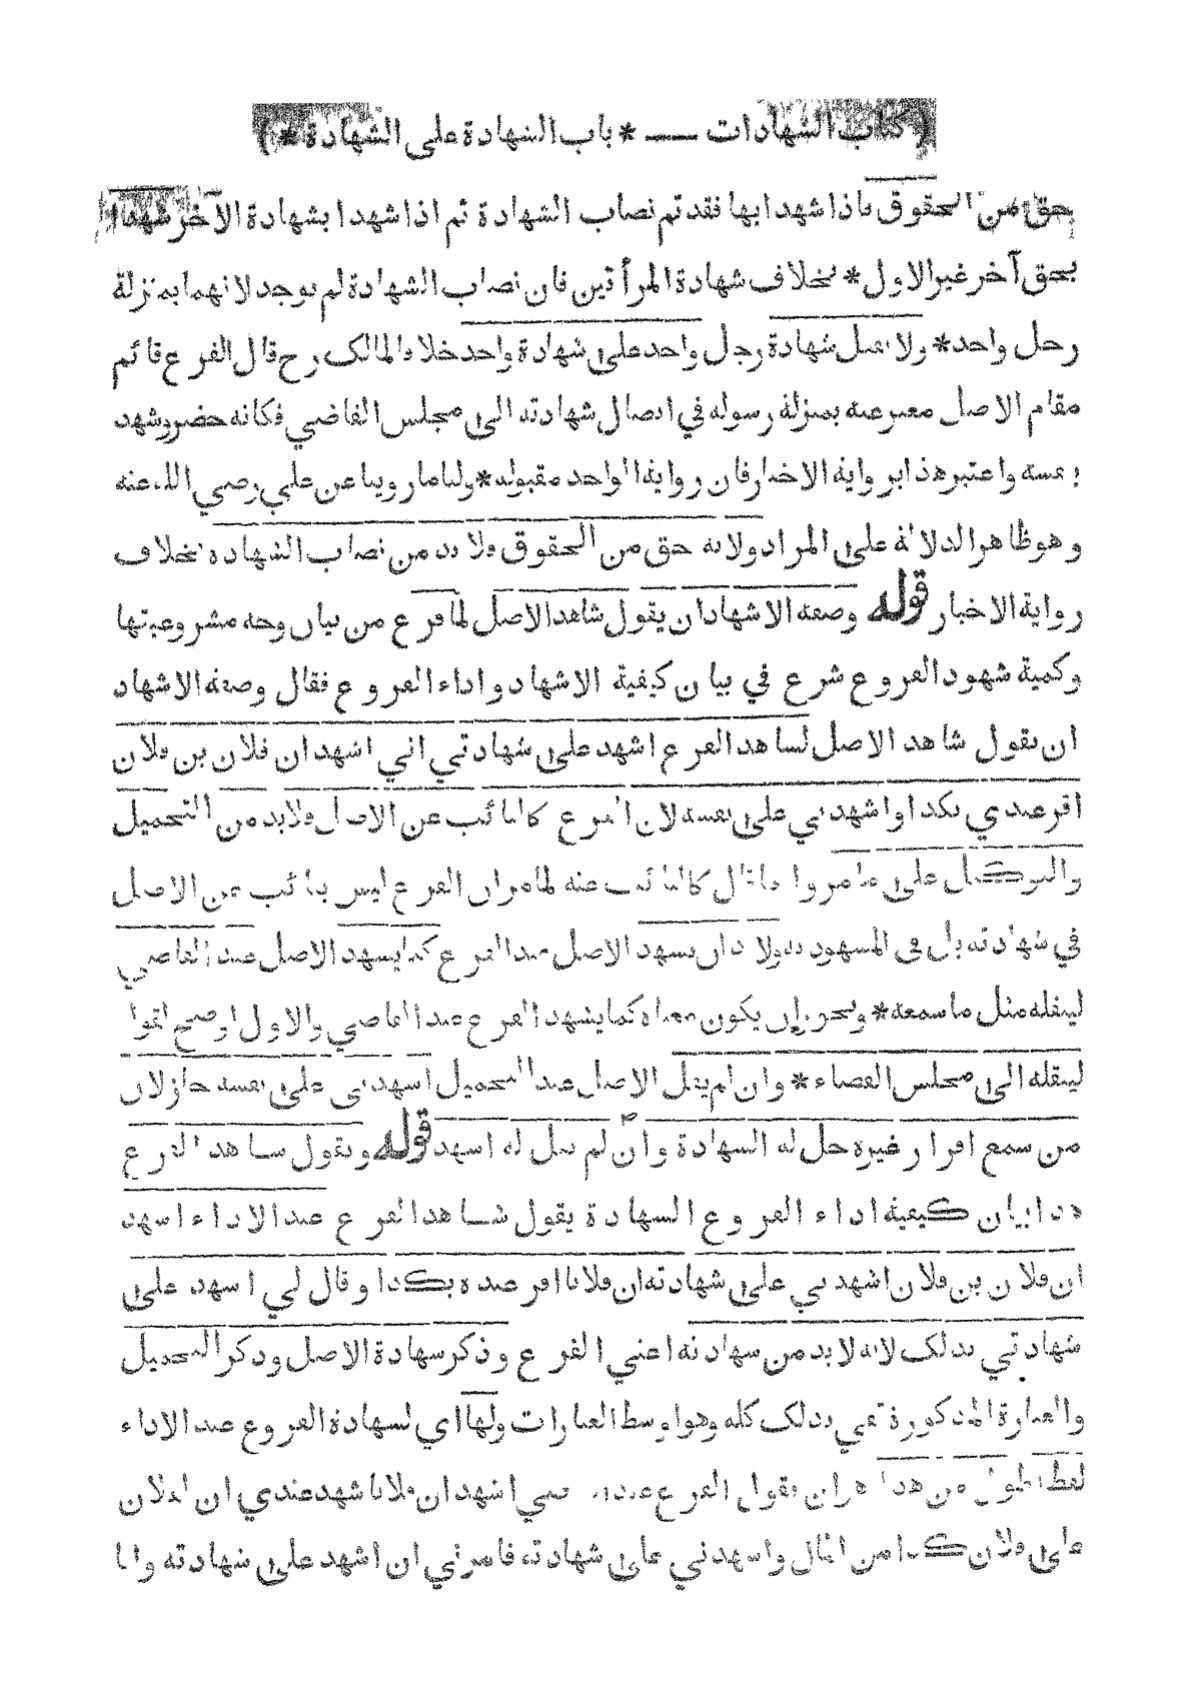 ( كتاب الشهادات — * باب الشهادة على الشهادة * )
حق من الحقوق فاذا شهدا بها فقد تم نصاب الشهادة ثم اذا شهدا بشهادة الآخر شهدا
بحق آخر غير الاول * بخلاف شهادة المرأتين فان نصاب الشهادة لم يوجد لانهما بمنزلة
رجل واحد * ولا تقبل شهادة رجل واحد على شهادة واحد خلافا لمالك رح قال الفرع قائم
مقام الاصل معبر عنه بمنزلة رسوله في ايصال شهادته الى مجلس القاضي فكانه حضر وشهد
بنفسه واعتبر هذا برواية الاخبار فان رواية الواحد مقبولة * ولنا ما روينا عن علي رضي الله عنه
وهو ظاهر الدلالة على المراد ولانه حق من الحقوق فلا بد من نصاب الشهادة بخلاف
رواية الاخبار قوله وصفة الاشهاد ان يقول شاهد الاصل لما فرغ من بيان وجه مشروعيتها
وكمية شهود الفروع شرع في بيان كيفية الاشهاد واداء الفروع فقال وصفة الاشهاد
ان يقول شاهد الاصل لشاهد الفرع اشهد على شهادتي اني اشهد ان فلان بن فلان
اقر عندي بكذا واشهدني على نفسه لان الفرع كالنائب عن الاصل فلا بد من التحميل
والتوكيل على ما مر وانما قال كالنائب عنه لما مر ان الفرع ليس بنائب عن الاصل
في شهادته بل في المشهود به ولا بد ان يشهد الاصل عند الفرع كما يشهد الاصل عند القاضي
لينقله مثل ما سمعه * ويجوز ان يكون معناه كما يشهد الفرع عند القاضي والاول اوضح لقوله
لينقله الى مجلس القضاء * وان لم يقل الاصل عند التحميل اشهدني على نفسه جاز لان
من سمع اقرار غيره حل له الشهادة وان لم يقل له اشهد قوله ويقول شاهد الفرع
هذا بيان كيفية اداء الفروع الشهادة يقول شاهد الفرع عند الاداء اشهد
ان فلان بن فلان اشهدني على شهادته ان فلانا اقر عنده بكذا وقال لي اشهد على
شهادتي بذلك لانه لا بد من شهادته اعني الفرع وذكر شهادة الاصل وذكر التحميل
والعبارة المذكورة تفي بذلك كله وهو اوسط العبارات ولها اي لشهادة الفروع عند الاداء
لفظ اطول من هذا وهو ان يقول الفرع عند القاضي اشهد ان فلانا شهد عندي ان لفلان
على فلان كذا من المال واشهدني على شهادته فامرني ان اشهد على شهادته وانا